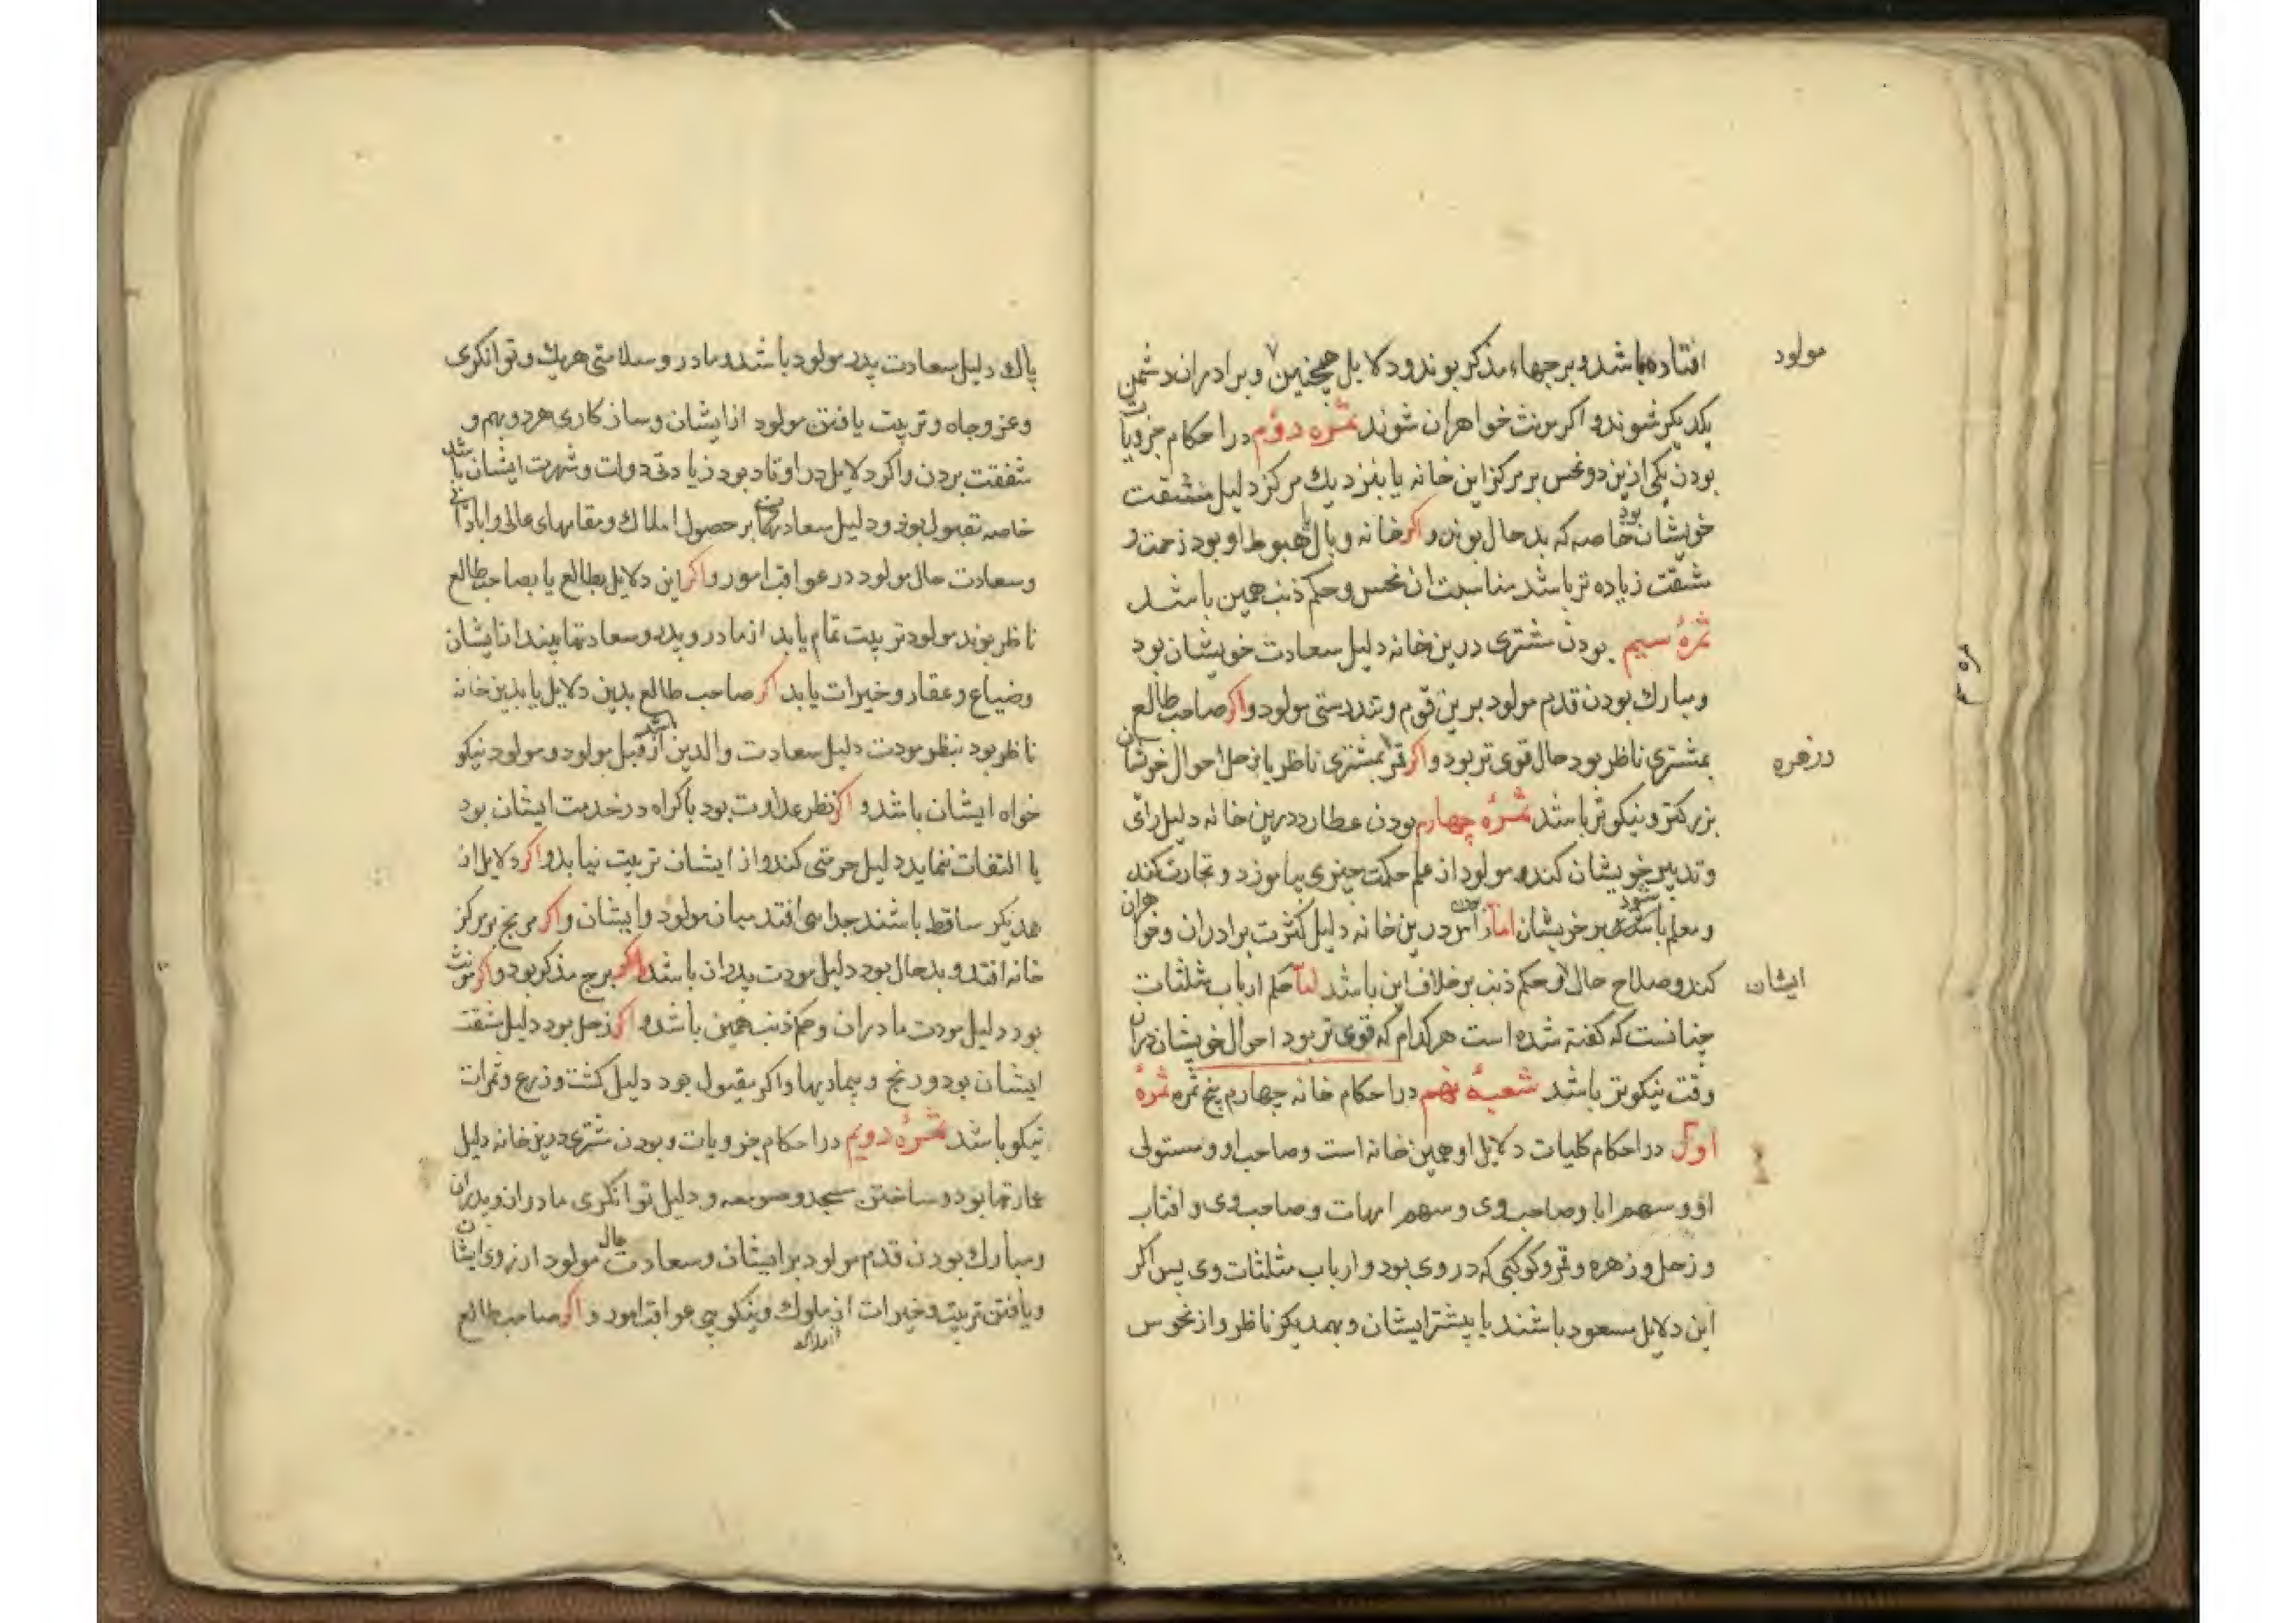 افتاده باشد و برجهاء مذکر بوند و دلایل همچنین و برادران دشمن
مولود
یکدیگر شوند و اگر مونث خواهران شوند ثمره دوم در احکام جزویات
بودن یکی ازین دو نحس بر مرکز این خانه یا بنزدیک مرکز دلیل مشقت
خویشان بود خاصه که بد حال بوند و اگر خانه وبال یا هبوط او بود زحمت و
مشقت زیاده تر باشد مناسبت ان نحس و حکم ذنب همین باشد
ثمرهٔ سیم بودن مشتری درین خانه دلیل سعادت خویشان بود
و مبارک بودن قدم مولود برین قوم و تندرستی مولود و اگر صاحب طالع
بمشتری ناظر بود حال قوی تر بود و اگر قمر بمشتری ناظر یا زحل احوال خویشان
وزهره
بزرگتر و نیکوتر باشد ثمرهٔ چهارم بودن عطارد درین خانه دلیل رای
و تدبیر خویشان کند و مولود از علم حکمت چیزی بیاموزد و تجارت کند
و معلم شود بر خویشان اما راس درین خانه دلیل کثرت برادران و خواهران
کند و صلاح حال او حکم ذنب بر خلاف این باشد اما حکم ارباب مثلثات
ایشان
چنانست که گفته شده است هر کدام که قوی تر بود احوال خویشان دران
وقت نیکوتر باشد شعبهٔ نهم در احکام خانه چهارم پنج ثمره ثمرهٔ
اول در احکام کلیات دلایل او همین خانه است و صاحب او و مستولی
او و سهم ابا و صاحب وی و سهم امهات و صاحب وی و افتاب
و زحل و زهره و قمر و کوکبی که در وی بود و ارباب مثلثات وی پس اگر
این دلایل مسعود باشند یا بیشتر ایشان و بهمدیگر ناظر و از نحوس
پاک دلیل سعادت پدر مولود باشد و مادر و سلامتی هریک و توانگری
و عز و جاه و تربیت یافتن مولود از ایشان و سازکاری هر دو بهم و
شفقت بردن و اگر دلایل در اوتاد بود زیادتی دولت و شهرت ایشان باشد
خاصه مقبول بوند و دلیل سعادتهای بر حصول املاک و مقامهای عالی و ابادانی
و سعادت حال مولود در عواقب امور و اگر این دلایل بطالع یا بصاحب طالع
ناظر بوند مولود تربیت تمام یابد از مادر و پدر و سعادتها بیند از ایشان
و ضیاع و عقار و خیرات یابد اگر صاحب طالع بدین دلایل یا بدین خانه
ناظر بود بنظر مودت دلیل سعادت والدین باشد از قبل مولود و مولود نیکو
خواه ایشان باشد و اگر نظر عداوت بود باکراه در خدمت ایشان بود
یا التفات ننماید دلیل حرمتی کند و از ایشان تربیت نیابد و اگر دلایل از
همدیگر ساقط باشند جدایی افتد میان مولود و ایشان و اگر مریخ بر مرکز
خانه افتد و بد حال بود دلیل موت پدران باشد اگر برج مذکر بود و اگر مونث
بود دلیل موت مادران و حکم ذنب همین باشد و اگر زحل بود دلیل مشقت
ایشان بود و رنج و بیماریها و اگر مقبول بود دلیل کشت و زرع و ثمرات
نیکو باشد ثمرهٔ دویم در احکام جزویات و بودن مشتری درین خانه دلیل
عمارتها بود و ساختن مسجد و صومعه و دلیل توانگری مادران و پدران
و مبارک بودن قدم مولود بر ایشان و سعادت حال مولود از روی ایشان
و یافتن تربیت و خیرات از ملوک و نیکویی عواقب امور و اگر صاحب طالع
املاک